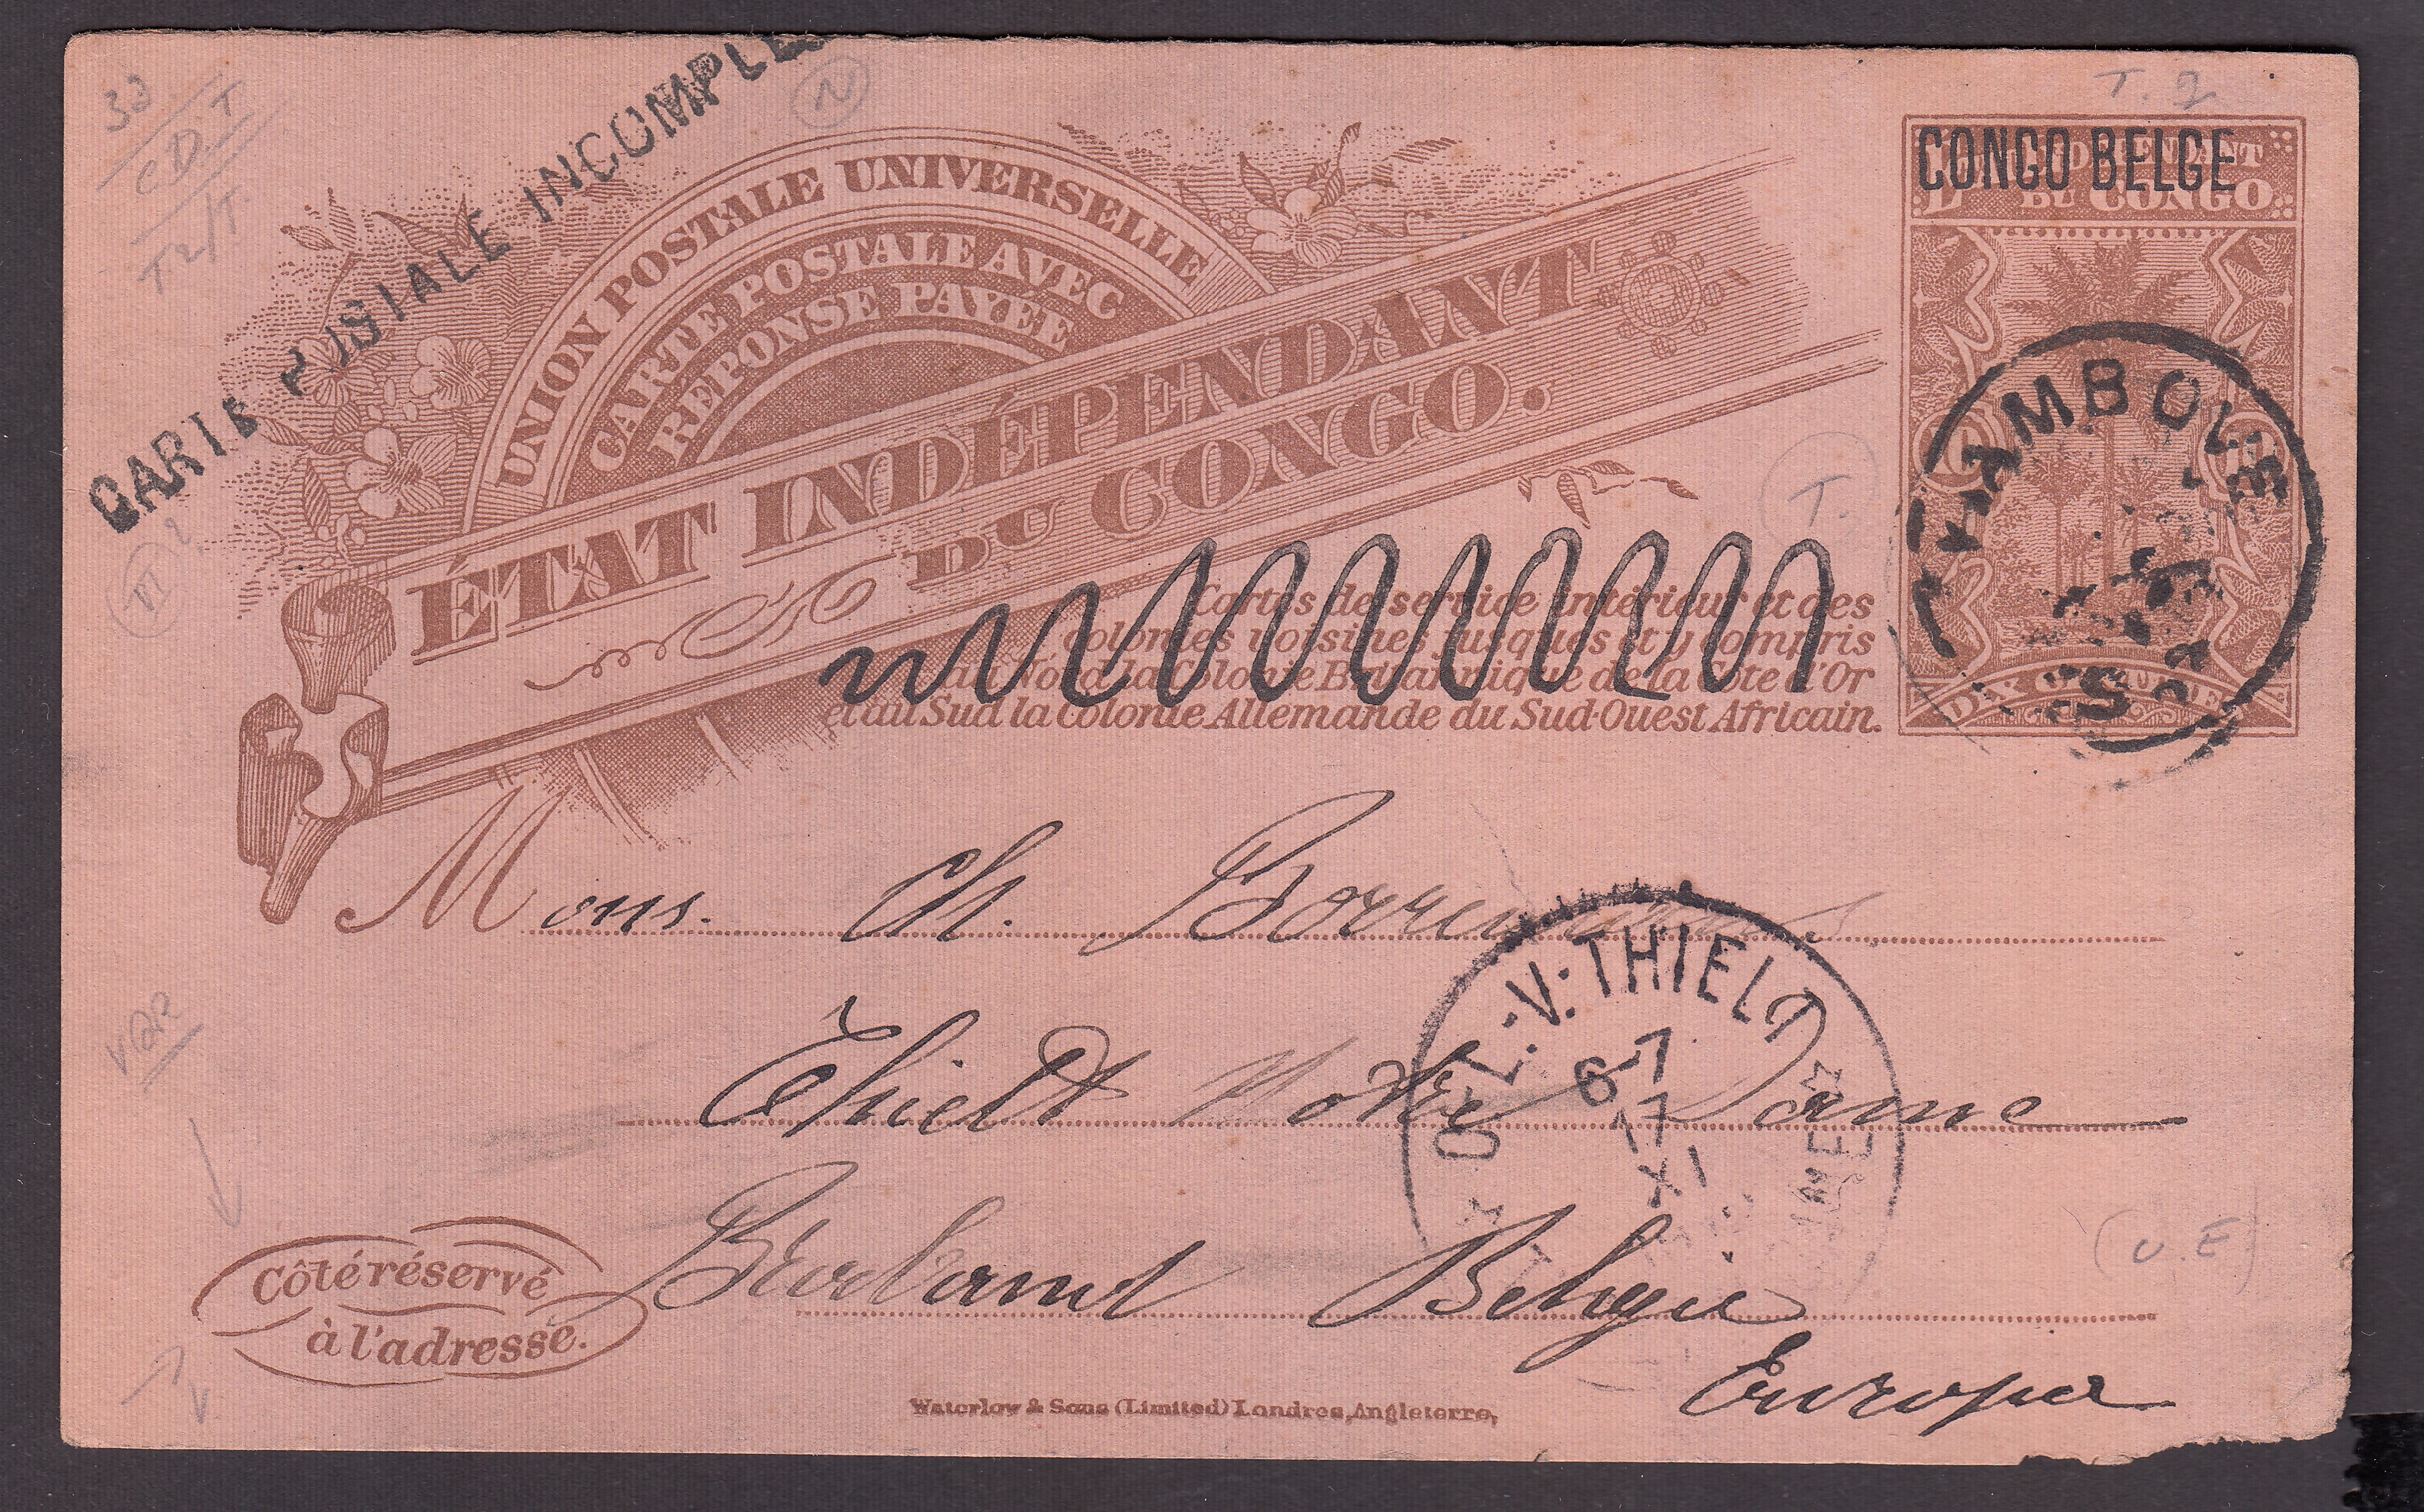 CARTE POSTALE INCOMPLE
N
33
C D T
T2/T.
T. 2
UNION POSTALE UNIVERSELLE
CARTE POSTALE AVEC
RÉPONSE PAYÉE
ÉTAT INDÉPENDANT
DU CONGO.
CONGO BELGE
DU CONGO
KAMBOVE
T.
Cartes de service intérieur et des
colonies voisines jusques et y compris
au Nord la Colonie Britannique de la Côte d'Or
et au Sud la Colonie Allemande du Sud-Ouest Africain.
Mons. Ch. Borremans
Thielt Notre Dame
Brabant Belgie
Europa
THIELT
6-7
17
XI
VOIR
(U.E)
Côté réservé
à l'adresse.
V
Waterlow & Sons (Limited) Londres, Angleterre,